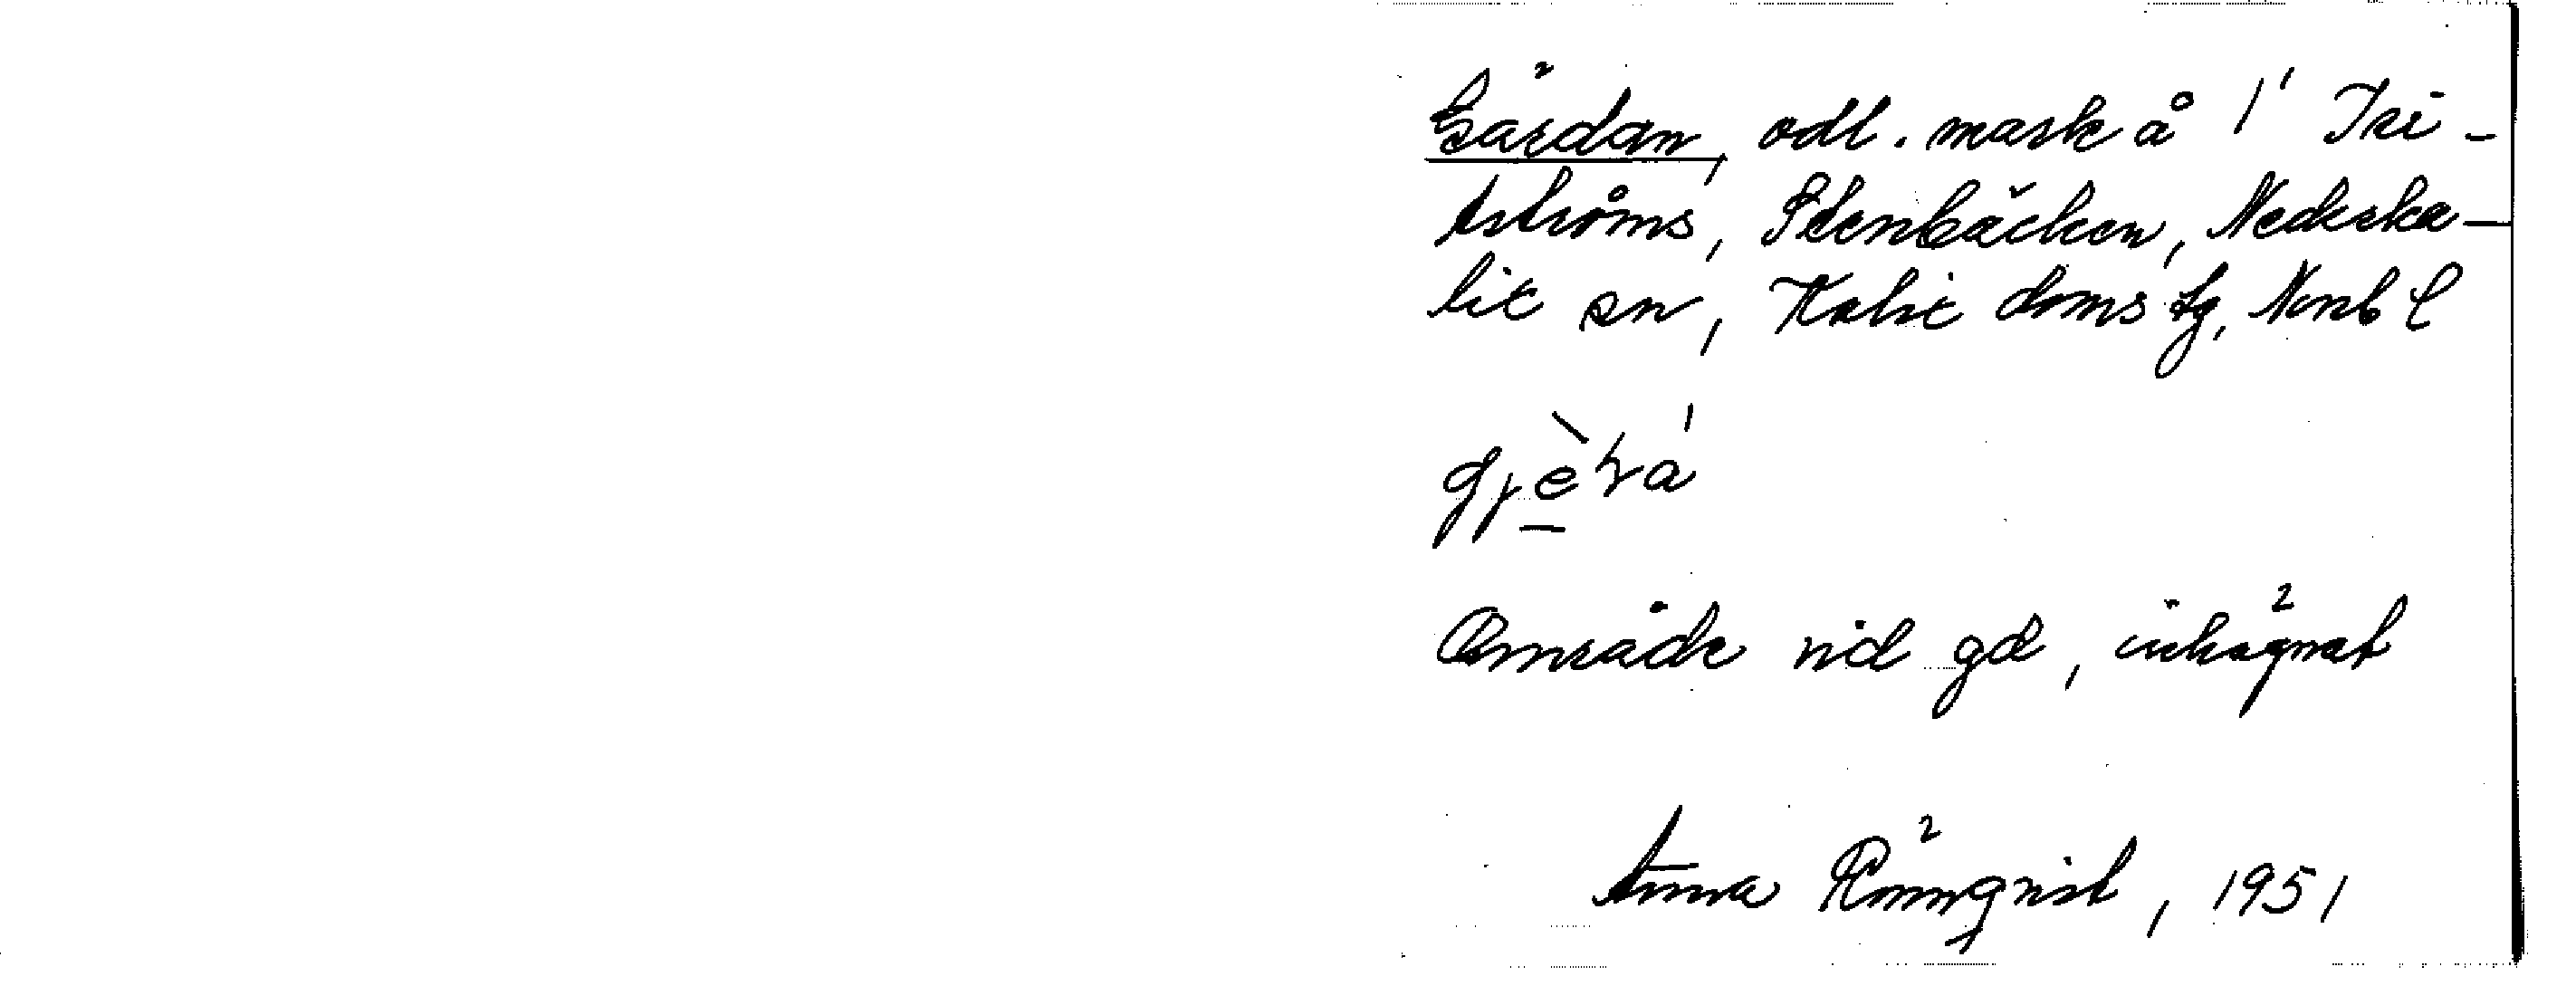 Gärdan, odl. mark å 1¹
tströms, Stenbäcken, Nederka-
lix sn, Kalix doms lg, Nonb l
Område vid gd, inhägnat
Anna Rönnqvist, 1951